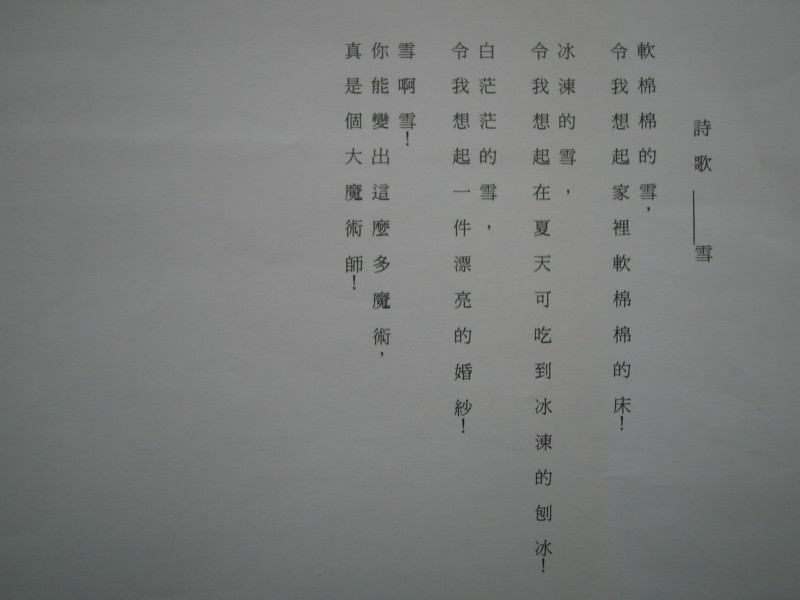 詩歌——雪
軟棉棉的雪，
令我想起家裡軟棉棉的床！
冰涷的雪，
令我想起在夏天可吃到冰涷的刨冰！
白茫茫的雪，
令我想起一件漂亮的婚紗！
雪啊雪！
你能變出這麼多魔術，
真是個大魔術師！